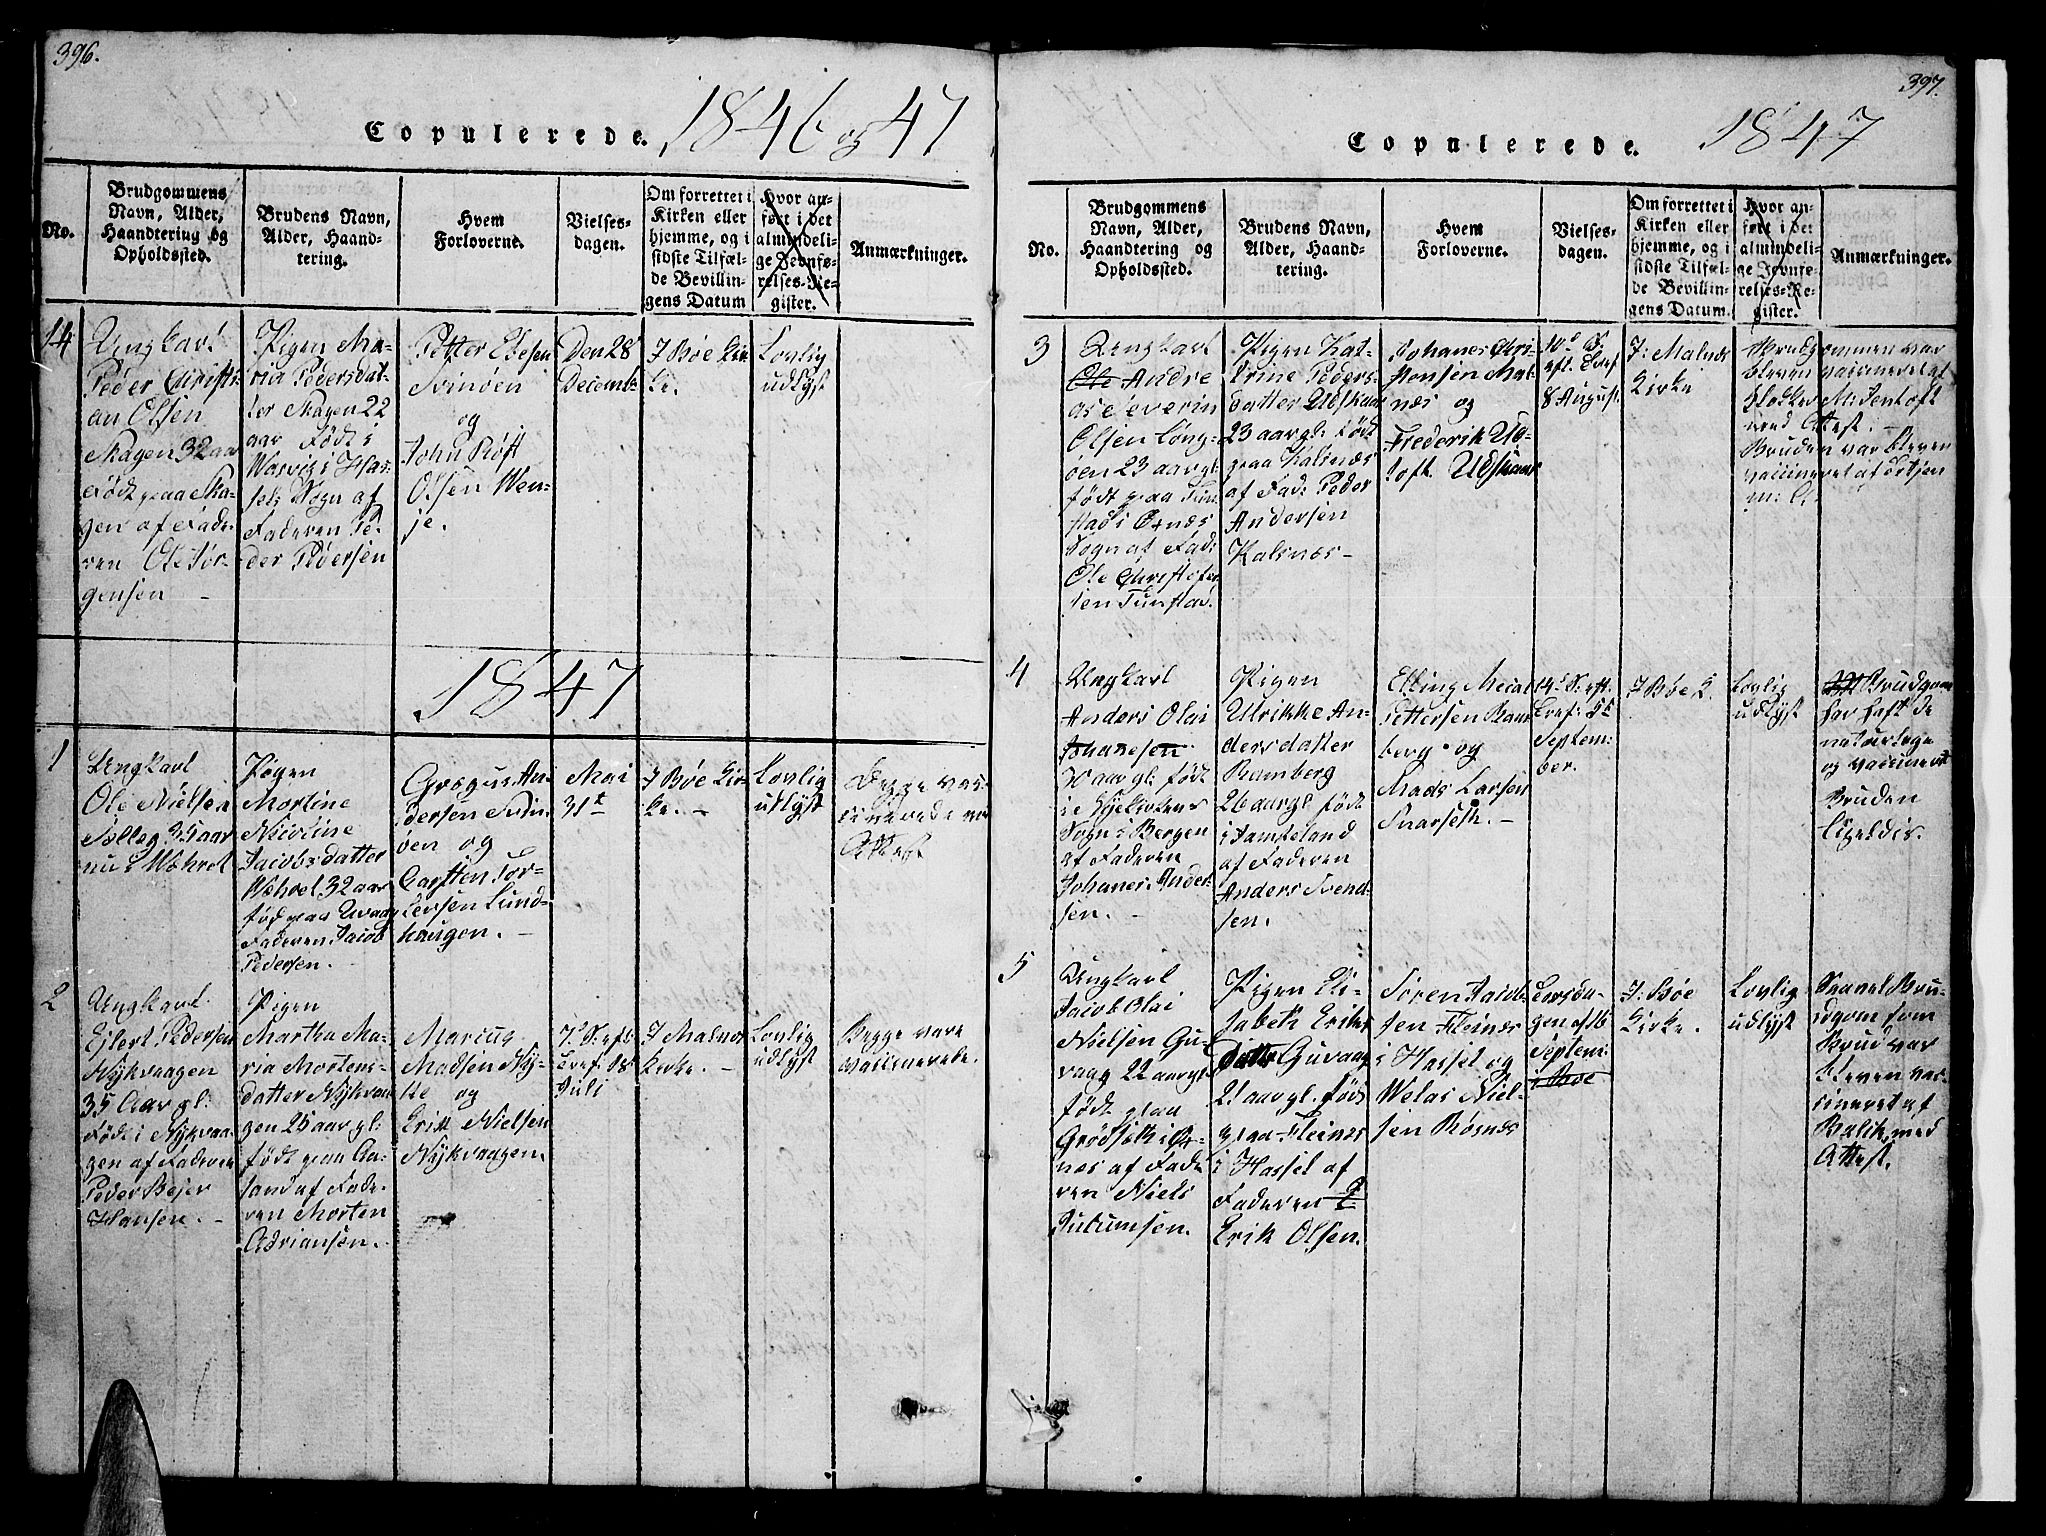 396.
Copulerede. 1846 og 47
No.
Brudgommens
Navn, Alder,
Haandtering og
Opholdssted.
Brudens Navn,
Alder, Haand-
tering.
Hvem
Forloverne.
Vielses-
dagen.
Om forrettet i
Kirken eller
hjemme, og i
sidste Tilfæl-
de Bevillin-
gens Datum
Hvor an-
ført i det
almindeli-
ge Jevnfø-
relses-Re-
gister.
Anmærkninger.
14
Ungkarl
Peder Christi-
an Olsen
Skagen 32 aar
født paa Ska-
gen af Fade-
ren Ole Jør-
gensen
Pigen Ma-
ria Pedersdat-
ter Skagen 22
aar Født i
i Has-
sel Sogn af
Faderen Pe-
der Pedersen
Petter Ebesen
Svinøen
og
John Røst
Olsen Wen-
je.
Den 28
Decembr
I Bøe Kir-
ke.
Lovlig
udlyst
1847
1
Ungkarl
Ole Nielsen
35 aar
nu i
Pigen
Mortine
Nicoline
Jacobsdatter
32 aar
fød paa
Faderen Jacob
Pedersen.
An-
dersen Svin-
øen og
Carsten Tor-
lersen Lund-
haugen.
Mai
31te
I Bøe Kir-
ke.
Lovlig
udlyst
Begge vac-
cinerede
Attest
2
Ungkarl
Ejlert Pedersen
Nykvaagen
35 Aar gl:
Født i Nykvaa-
gen af Faderen
Peder Bejer
Hansen.
Pigen
Martha Ma-
ria Mortens-
datter Nykvaa-
gen 25 aar gl:
født paa Aa-
sand af Fade-
ren Morten
Adriansen.
Marcus
Madsen Nyk-
og
Erik Nielsen
Nykvaagen.
7de S: eft:
Tref: 18
Juli
I Malnes
Kirke.
Lovlig
udlyst
Begge vare
vaccinerede.
397.
Copulerede. 1847
No.
Brudgommens
Navn, Alder,
Haandtering og
Opholdssted.
Brudens Navn,
Alder, Haand-
tering.
Hvem
Forloverne.
Vielses-
dagen.
Om forrettet i
Kirken eller
hjemme, og i
sidste Tilfæl-
de Bevillin-
gens Datum.
Hvor an-
ført i det
almindeli-
ge Jevnfø-
relses-Re-
gister.
Anmærkninger.
3
Ungkarl
Ole Andre
as Severin
Olsen Lång-
øen 23 aar gl:
født paa Tun-
stad i Øxnæs
Sogn af Fad:
Ole Christofer
sen Tunstad.
Pigen Kat-
trine Peders-
datter Ubskaar
23 aar gl: født
paa Kalsnæs
af Fad: Peder
Andersen
Kalsnæs
Johanes Chri-
stensen Mal-
næs og
Frederik
Ubskaar
10de S:
eft. Tref
8 August
I: Malnæs
Kirke
Brudgommen var
bleven vaccineret af
Klokker M: Jentoft
med Attest.
Bruden var bleven
vaccineret af
m: A
4
Ungkarl
Anders Olai
Johanesen
30 aar gl: født
i
Sogn i Bergen
af Faderen
Johanes Ander-
sen.
Pigen
Ulrikke An-
dersdatter
Ramberg
26 aar gl: født
i Jamteland
af Faderen
Anders Svend-
sen.
Elling
Pettersen Ram-
berg og
Mads Larsen
Snarseth.
14de S: eft.
Tref: 5te
Septem-
ber.
I Bøe K.
Lovlig
udlyst
Brudgom
har haft de
naturlige
og vaccineret
Bruden
ligeledis.
5
Ungkarl
Jacob Olai
Nielsen Gu-
vaag 22 aar gl:
født paa
Grødseth i Øx-
næs af Fade
ren Niels
Pigen Eli-
sabeth Eriks
datter Guvaag
21 aar gl. født
paa Fleinæs
i Hassel af
Faderen
Erik Olsen.
Søren Jacob-
sen Fleinæs
i Hassel og
Niel-
sen Røsnæs
Torsda-
gen d 16
Septem:
i Boe
I: Bøe
Kirke.
Lovlig
udlyst
Brud-
gom som
Brud var
bleven vac-
cineret af
med
Attest.